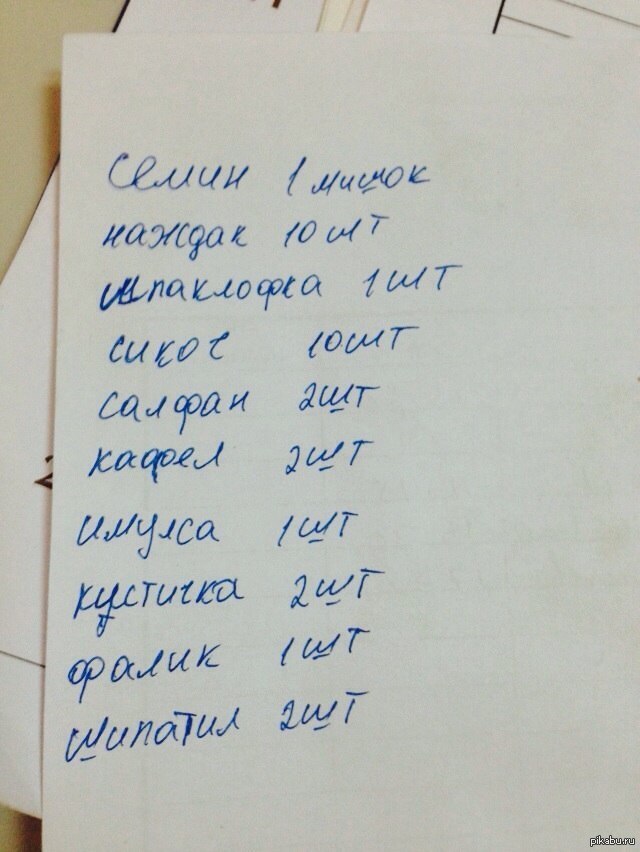 Семин 1 мишок
наждак 10 шт
шпаклофка 1 шт
сикос 10 шт
салфан 2 шт
кафел 2 шт
имулса 1 шт
кустичка 2 шт
фалик 1 шт
шипатил 2 шт
pikabu.ru